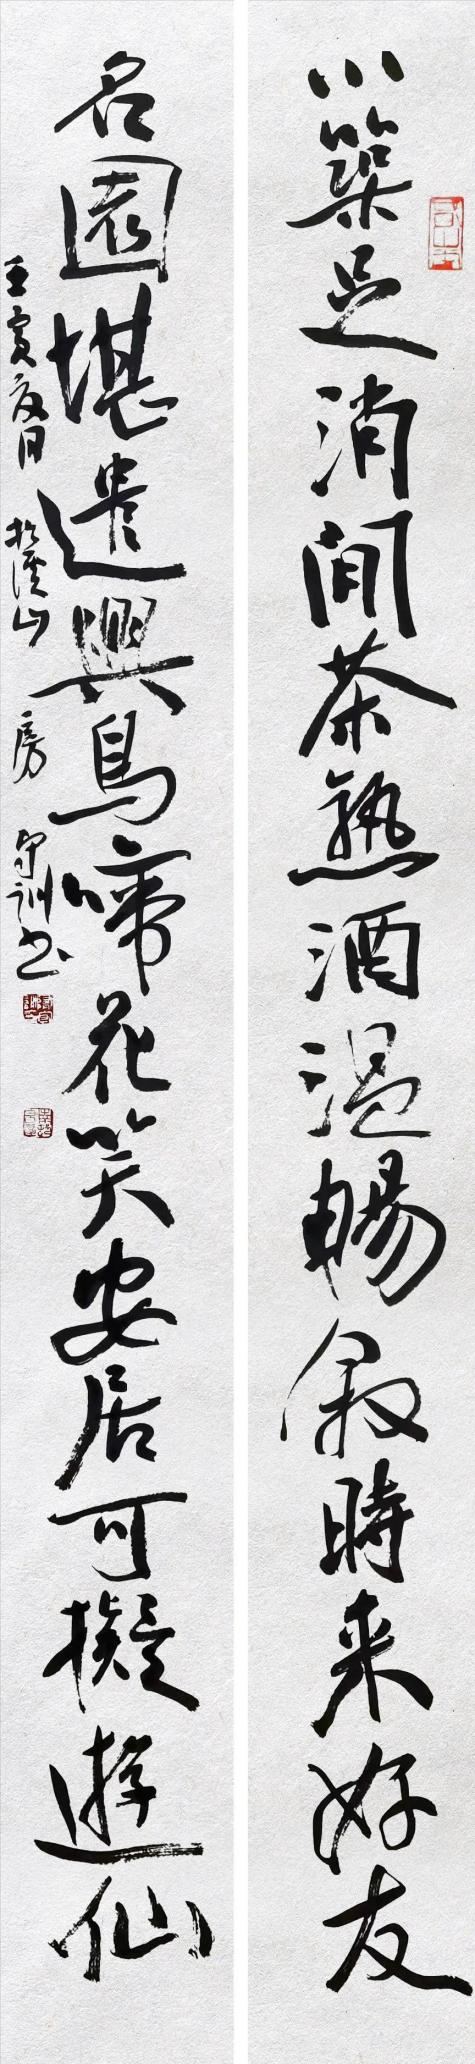 小築足消閒茶熟酒温暢叙時来好友
名園堪遣興鳥啼花笑安居可擬遊仙
壬寅夏月於溪山房守訓书